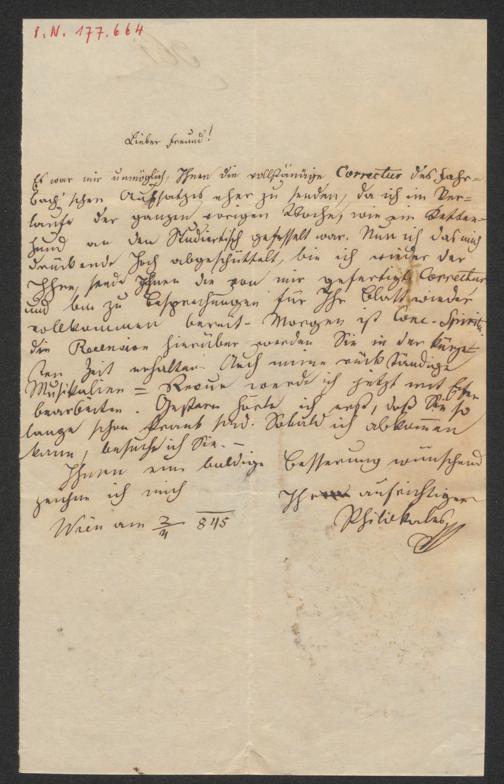 I. N. 177.664
Lieber Freund!
Es war mir unmöglich, Ihnen die vollständige Correctur des Fahr-
bach'schen Aufsatzes eher zu senden, da ich im Ver-
laufe der ganzen vorigen Woche, wie ein Ketten-
hund an den Studiertisch gefesselt war. Nun ich das mich
drückende Joch abgeschüttelt, bin ich wieder der
Ihre, sende Ihnen die von mir gefertigte Correctur
und bin zu Besprechungen für Ihr Blatt wieder
vollkommen bereit. Morgen ist Conc. Spirit.
die Recension hierüber werden Sie in der kürze-
sten Zeit erhalten. Auch meine rückständige
Musikalien = Revue werde ich jetzt mit
bearbeiten. Gestern hörte ich erst, daß Sie so
lange schon krank sind. Sobald ich abkommen
kann, besuche ich Sie. –
Ihnen eine baldige Besserung wünschend
zeichne ich mich
Ihr aufrichtiger
Wien am 2/4 845
Philokales